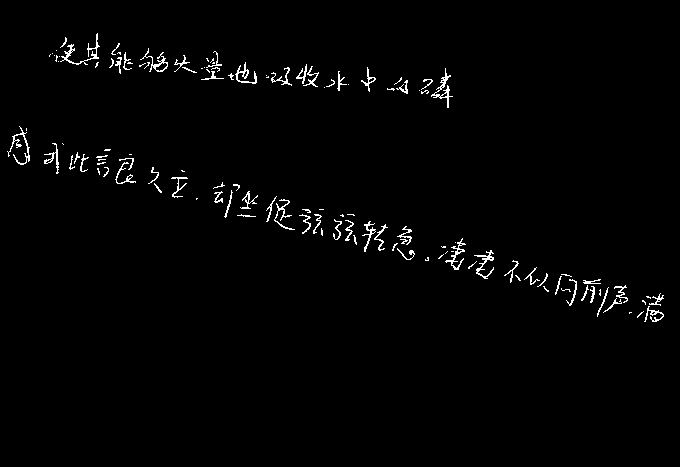 使其能够大量地吸收水中的磷
感我此言良久立.却坐促弦弦转急。凄凄不似向前声.满